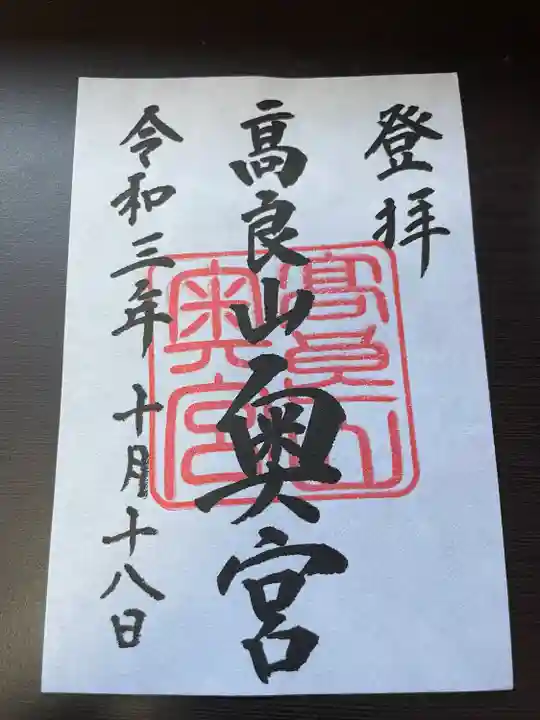 登拝
高良山奥宮
高良山奥宮
令和三年十月十八日